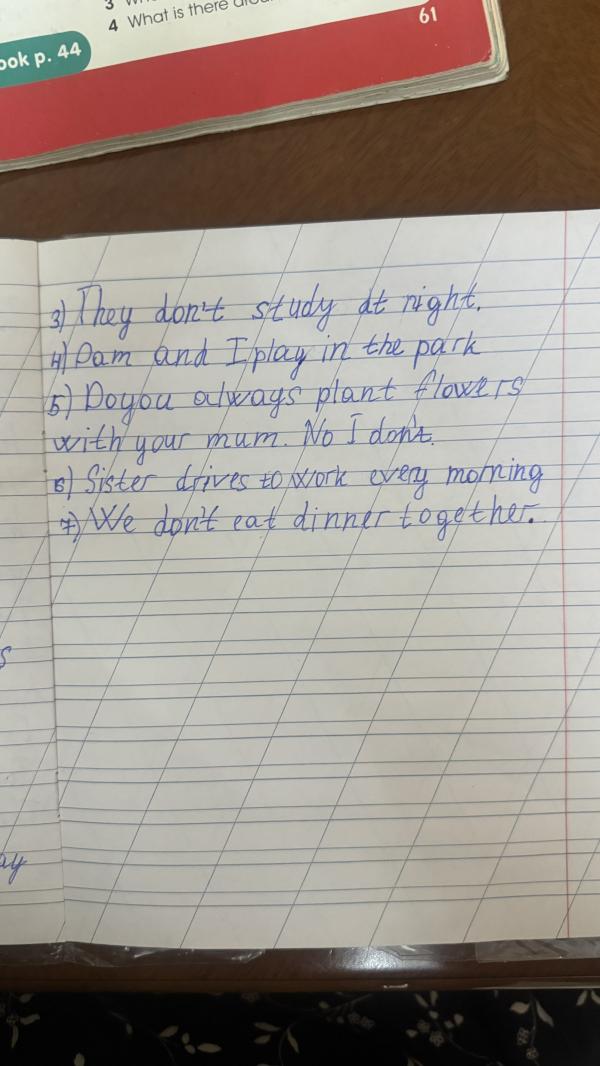 3 Wh
4 What is there arou
ook p. 44
61
3) They don't study at night.
4) Dam and I play in the park
5) Do you always plant flowers
with your mum. No I don't.
6) Sister drives to work every morning
7) We don't eat dinner together.
s
ay